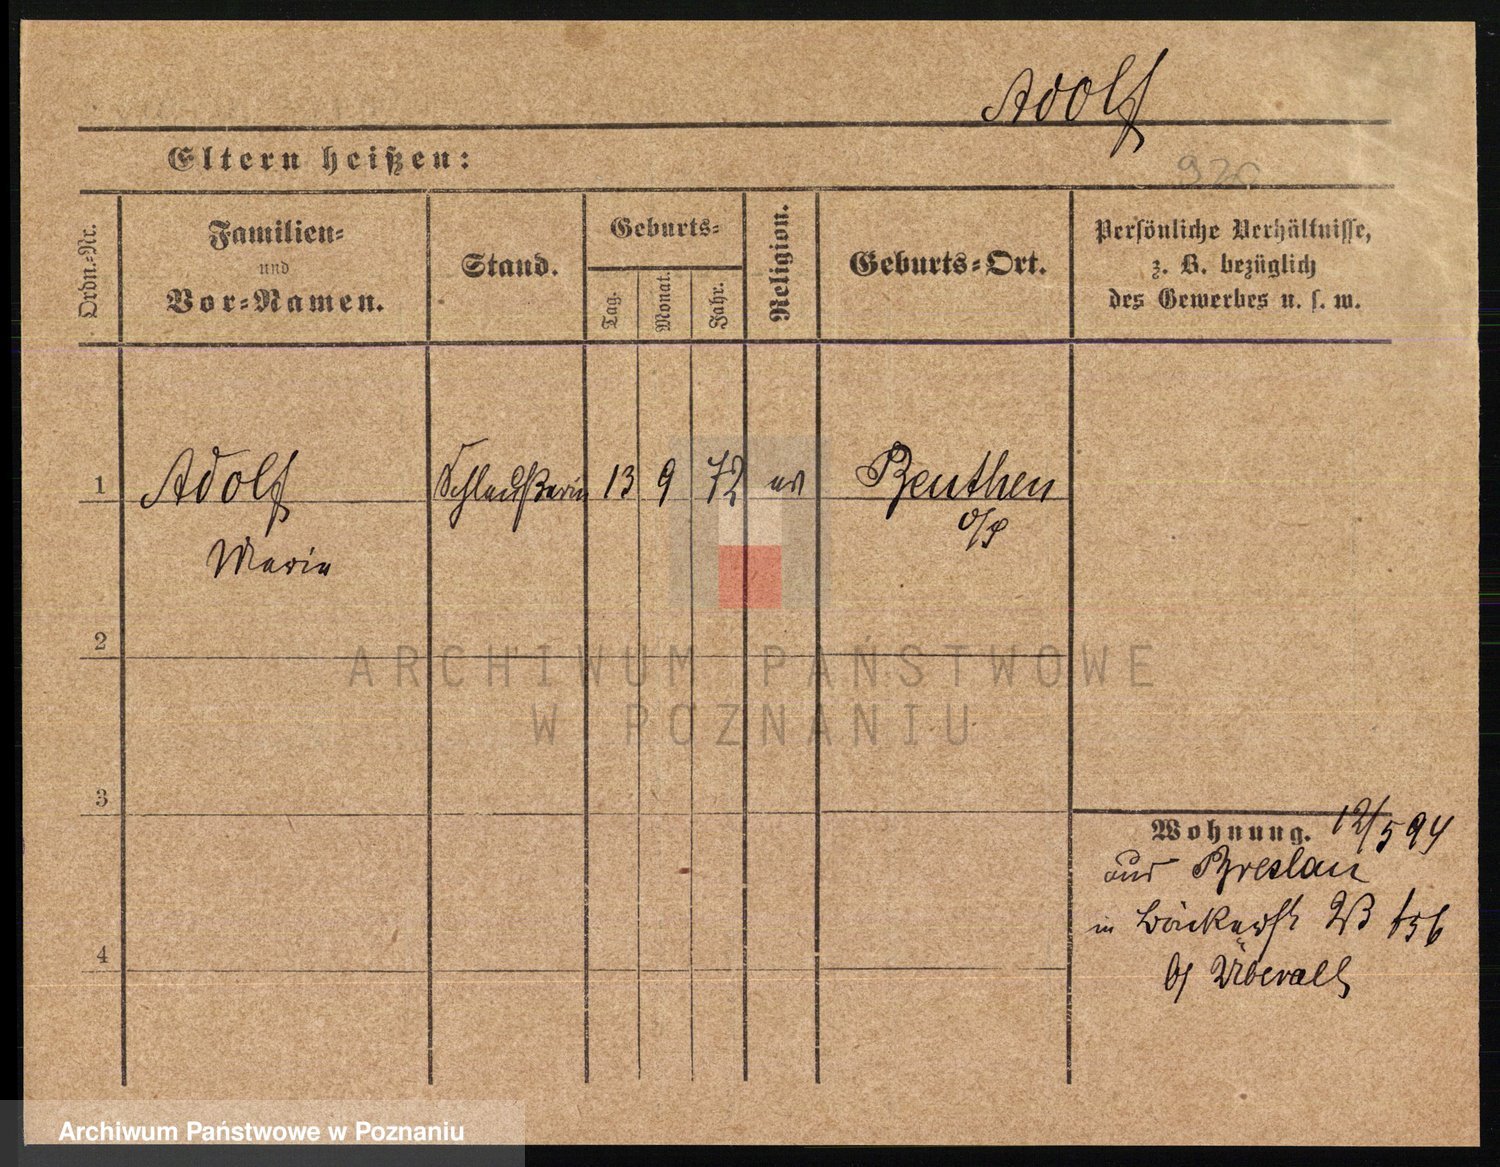 Adolf
Eltern heißen:
Ordn.-Nr.
Familien-
und
Vor-Namen.
Stand.
Geburts-
Tag.
Monat.
Jahr.
Religion.
Geburts-Ort.
Persönliche Verhältnisse,
z. B. bezüglich
des Gewerbes u. s. w.
1
Adolf
13
9
72
ev
Beuthen
Marie
2
ARCHIWUM PAŃSTWOWE
W POZNANIU
3
Wohnung. 12/5 94
aus Breslau
in
4
Überall
Archiwum Państwowe w Poznaniu